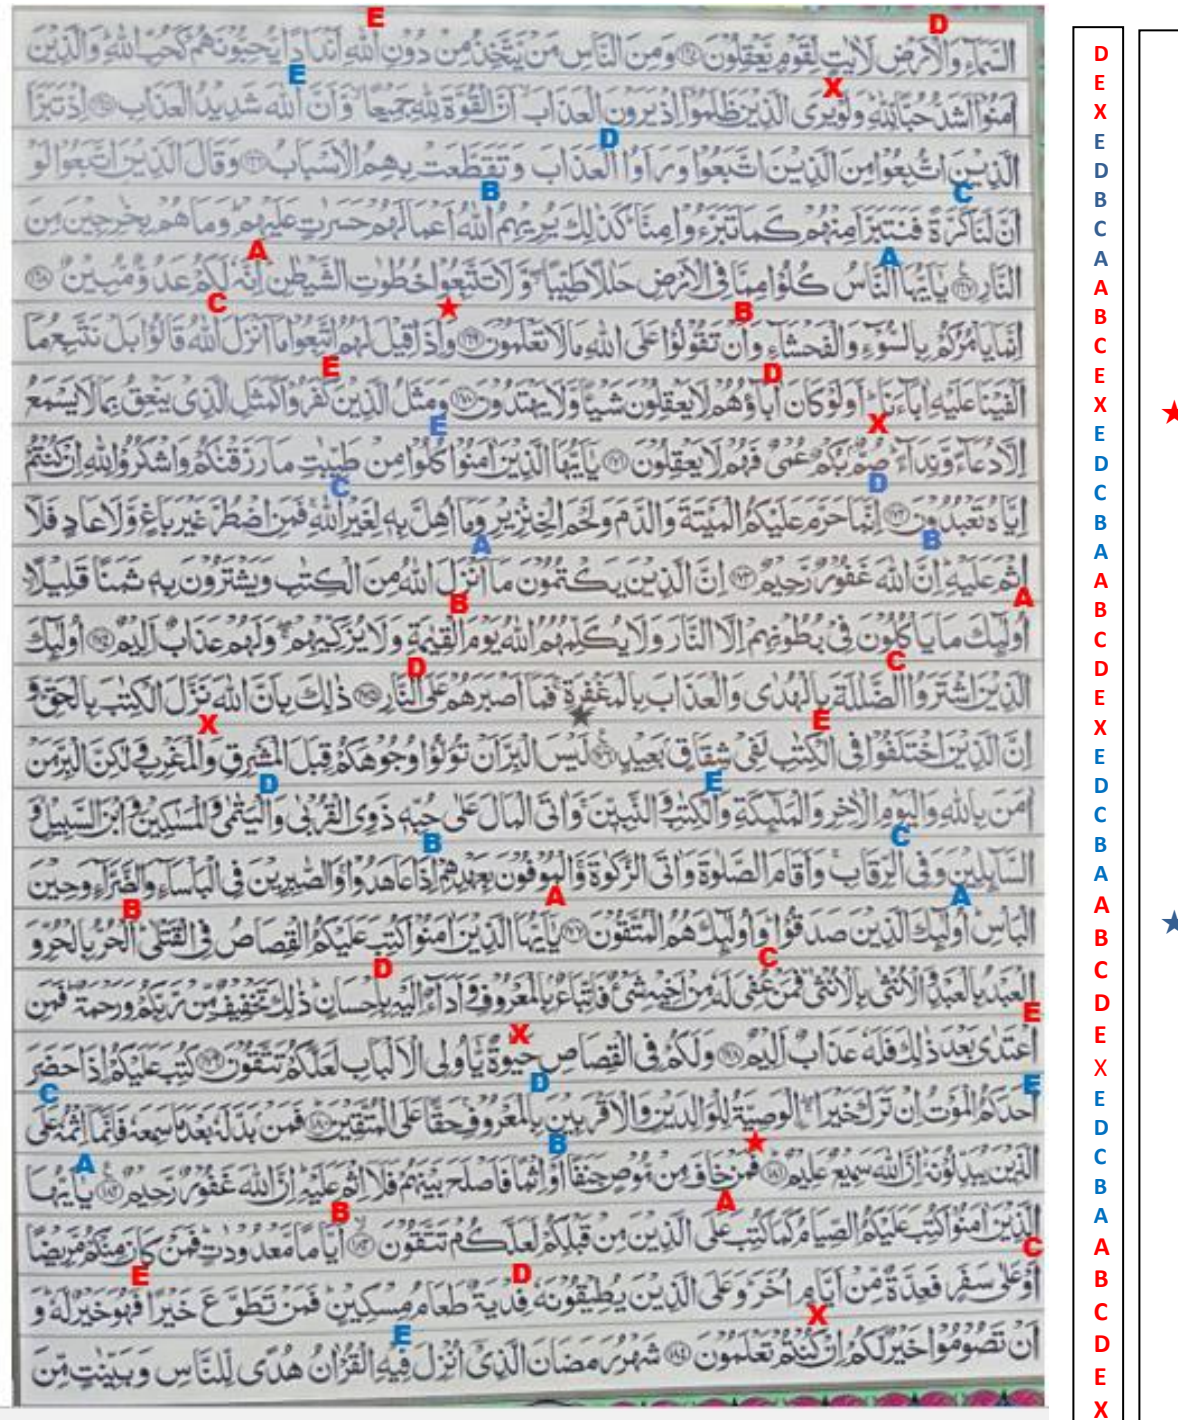 E D
السماء والارض لايت لقوم يعقلون ۱۶۴ ومن الناس من يتخذ من دون الله اندادا يحبونهم كحب الله والذين
E X
امنوا اشد حبا لله ولو يرى الذين ظلموا اذ يرون العذاب ان القوة لله جميعا وان الله شديد العذاب ۱۶۵ اذ تبرا
D
الذين اتبعوا من الذين اتبعوا وراوا العذاب وتقطعت بهم الاسباب ۱۶۶ وقال الذين اتبعوا لو
B C
ان لنا كرة فنتبرا منهم كما تبرءوا منا كذلك يريهم الله اعمالهم حسرت عليهم وما هم بخرجين من
A A
النار ۱۶۷ يايها الناس كلوا مما في الارض حللا طيبا ولا تتبعوا خطوت الشيطن انه لكم عدو مبين ۱۶۸
C ★ B
انما يامركم بالسوء والفحشاء وان تقولوا على الله ما لا تعلمون ۱۶۹ واذا قيل لهم اتبعوا ما انزل الله قالوا بل نتبع ما
E D
الفينا عليه اباءنا اولو كان اباؤهم لا يعقلون شيئا ولا يهتدون ۱۷۰ ومثل الذين كفروا كمثل الذي ينعق بما لا يسمع
E X
الا دعاء ونداء صم بكم عمي فهم لا يعقلون ۱۷۱ يايها الذين امنوا كلوا من طيبت ما رزقنكم واشكروا لله ان كنتم
C D
اياه تعبدون ۱۷۲ انما حرم عليكم الميتة والدم ولحم الخنزير وما اهل به لغير الله فمن اضطر غير باغ ولا عاد فلا
A B
اثم عليه ان الله غفور رحيم ۱۷۳ ان الذين يكتمون ما انزل الله من الكتب ويشترون به ثمنا قليلا
B A
اولئك ما ياكلون في بطونهم الا النار ولا يكلمهم الله يوم القيمة ولا يزكيهم ولهم عذاب اليم ۱۷۴ اولئك
D C
الذين اشتروا الضللة بالهدى والعذاب بالمغفرة فما اصبرهم على النار ۱۷۵ ذلك بان الله نزل الكتب بالحق و
X ★ E
ان الذين اختلفوا في الكتب لفي شقاق بعيد ۱۷۶ ليس البر ان تولوا وجوهكم قبل المشرق والمغرب ولكن البر من
D E
امن بالله واليوم الاخر والملئكة والكتب والنبين واتى المال على حبه ذوي القربى واليتمى والمسكين وابن السبيل و
B C
السائلين وفي الرقاب واقام الصلوة واتى الزكوة والموفون بعهدهم اذا عاهدوا والصبرين في الباساء والضراء وحين
B A A
الباس اولئك الذين صدقوا واولئك هم المتقون ۱۷۷ يايها الذين امنوا كتب عليكم القصاص في القتلى الحر بالحر و
D C
العبد بالعبد والانثى بالانثى فمن عفي له من اخيه شيء فاتباع بالمعروف واداء اليه باحسان ذلك تخفيف من ربكم ورحمة فمن
X E
اعتدى بعد ذلك فله عذاب اليم ۱۷۸ ولكم في القصاص حيوة ياولي الالباب لعلكم تتقون ۱۷۹ كتب عليكم اذا حضر
C D E
احدكم الموت ان ترك خيرا الوصية للوالدين والاقربين بالمعروف حقا على المتقين ۱۸۰ فمن بدله بعد ما سمعه فانما اثمه على
A B ★
الذين يبدلونه ان الله سميع عليم ۱۸۱ فمن خاف من موص جنفا او اثما فاصلح بينهم فلا اثم عليه ان الله غفور رحيم ۱۸۲ يايها
B A
الذين امنوا كتب عليكم الصيام كما كتب على الذين من قبلكم لعلكم تتقون ۱۸۳ اياما معدودت فمن كان منكم مريضا
E D C
او على سفر فعدة من ايام اخر وعلى الذين يطيقونه فدية طعام مسكين فمن تطوع خيرا فهو خير له و
E X
ان تصوموا خير لكم ان كنتم تعلمون ۱۸۴ شهر رمضان الذي انزل فيه القران هدى للناس وبينت من
D
E
X
E
D
B
C
A
A
B
C
E
X
E
D
C
B
A
A
B
C
D
E
X
E
D
C
B
A
A
B
C
D
E
X
E
D
C
B
A
A
B
C
D
E
X
★
★